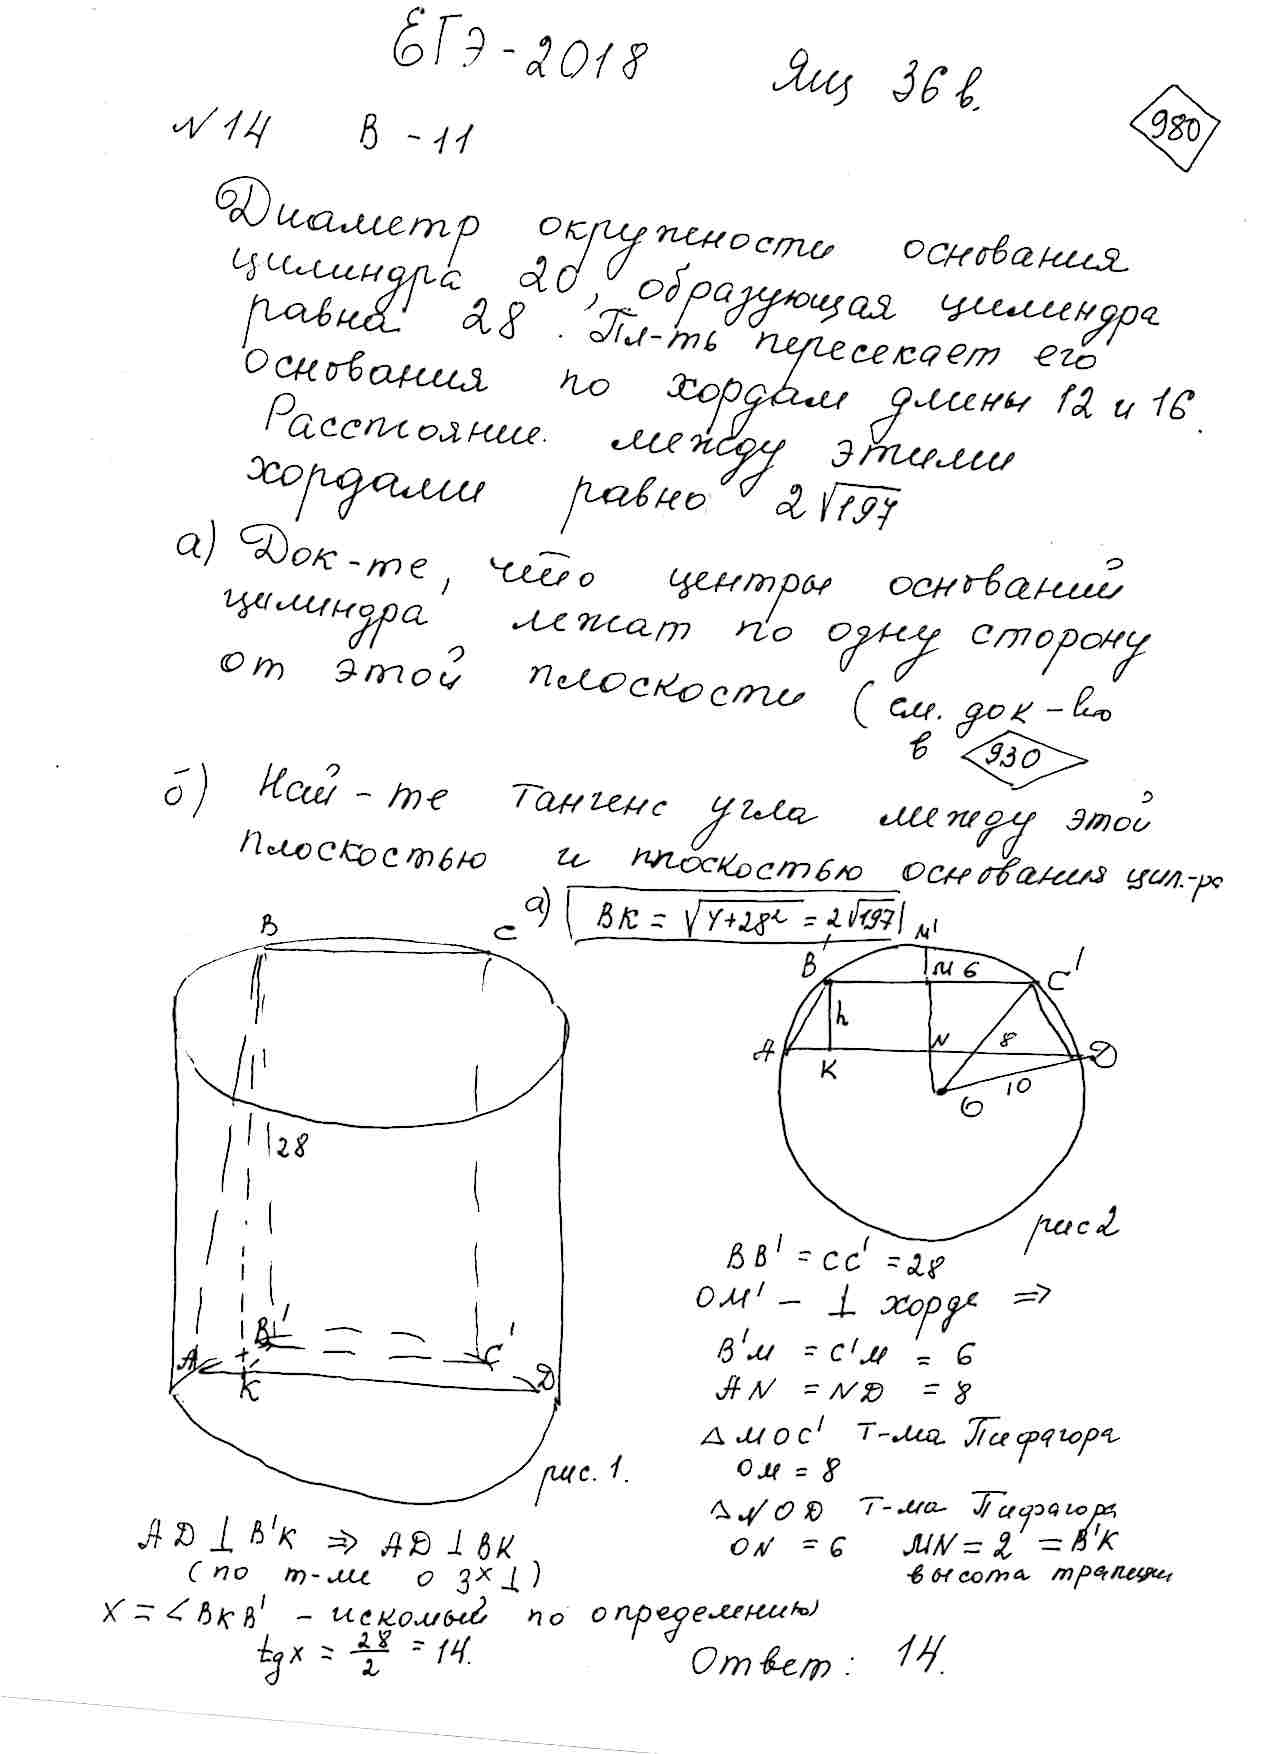 ЕГЭ-2018 Ящ 36 в.
980
№14 В - 11
Диаметр окружности основания
цилиндра 20, образующая цилиндра
равна 28. Пл-ть пересекает его
основания по хордам длины 12 и 16.
Расстояние между этими
хордами равно 2√197
а) Док-те, что центры оснований
цилиндра лежат по одну сторону
от этой плоскости (см. док-во
в 930
б) Най-те тангенс угла между этой
плоскостью и плоскостью основания цил.-ра
а) BK = √4+28² = 2√197
B C
M'
B' M 6 C'
h
A K N 8 D
10
O
28
рис 2
A B' C' D
K
рис. 1.
BB' = CC' = 28
OM' - ⊥ хорде ⇒
B'M = C'M = 6
AN = ND = 8
△MOC' т-ма Пифагора
OM = 8
△NOD т-ма Пифагора
ON = 6 MN = 2 = B'K
высота трапеции
AD ⊥ B'K ⇒ AD ⊥ BK
(по т-ме о 3х ⊥)
x = ∠BKB' - искомый по определению
tg x = 28/2 = 14.
Ответ: 14.